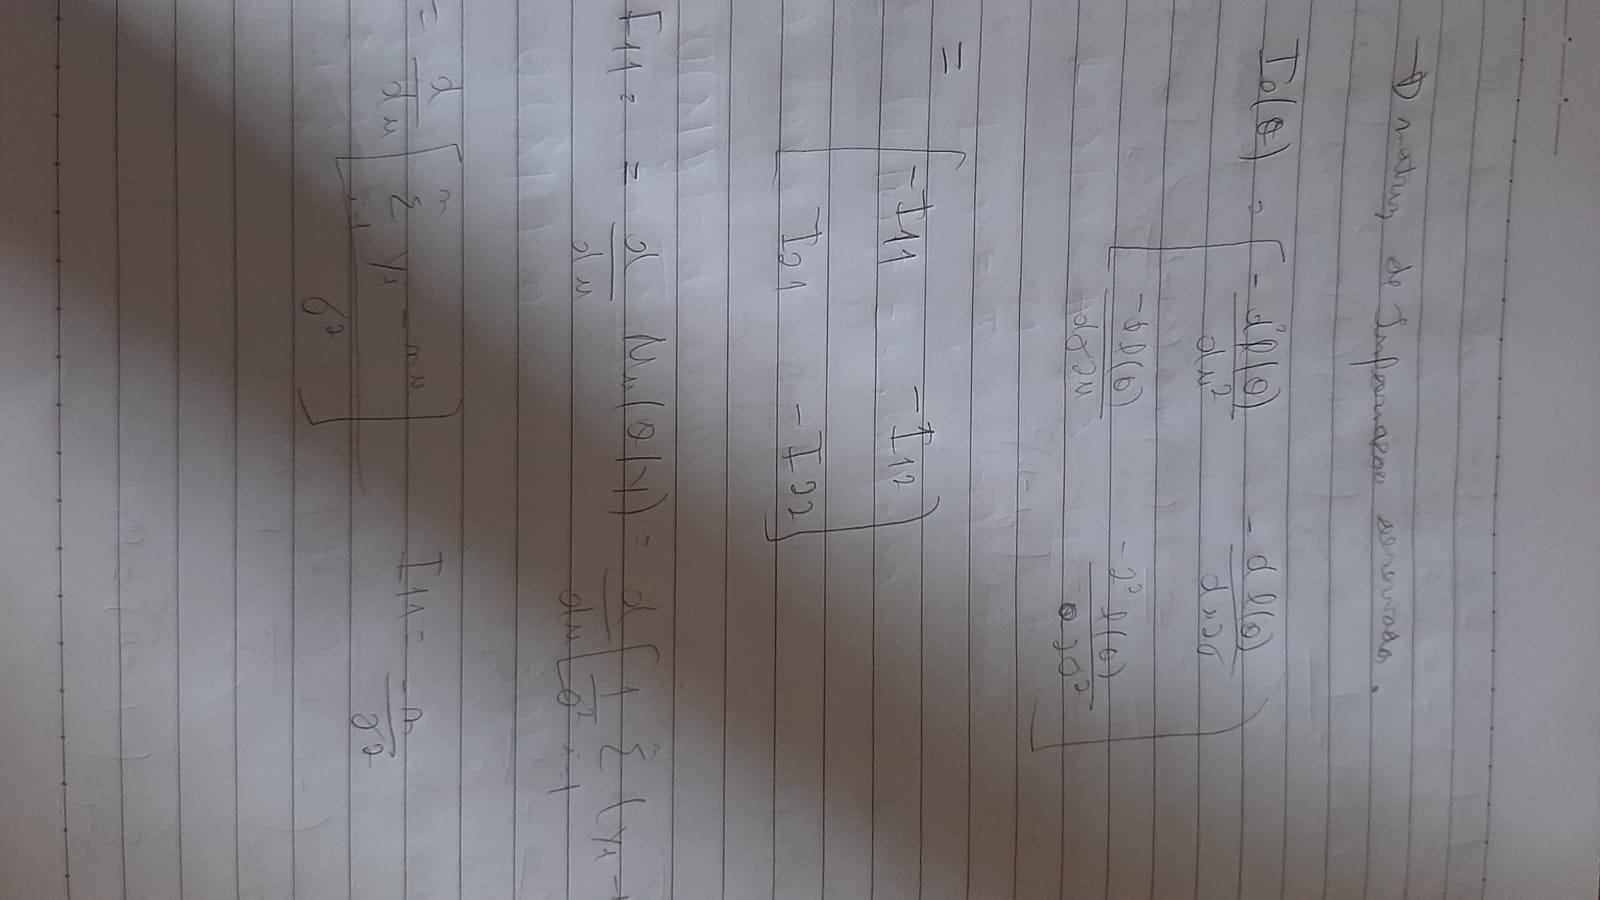 → matriz de Informação observada.
I₀(θ) = [ -d²l(θ)/dμ² -dl(θ)/dμ∂σ
-∂l(θ)/dσ∂μ -∂²l(θ)/∂σ² ]
= [ -I11 -I12
I21 -I22 ]
I11 = = d/dμ Uμ(θ|y) = d/dμ [ 1/σ² Σ i=1 (y1 -
= d/dμ [ n Σ i=1 y1 - nμ / σ² ] I11 = -n/σ²